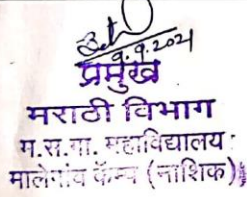 9.9.2021
प्रमुख
मराठी विभाग
म.स.गा. महाविद्यालय
मालेगांव कॅम्प (नाशिक)